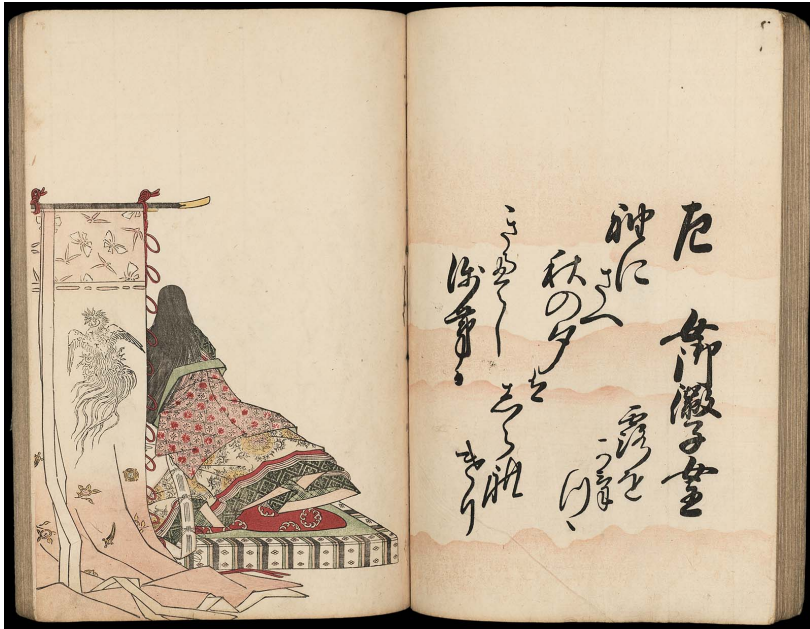 左 女御徽子女王
袖に
さへ
秋の夕は
しられ
けり
きえし
浅茅か
露を
かけ
つゝ